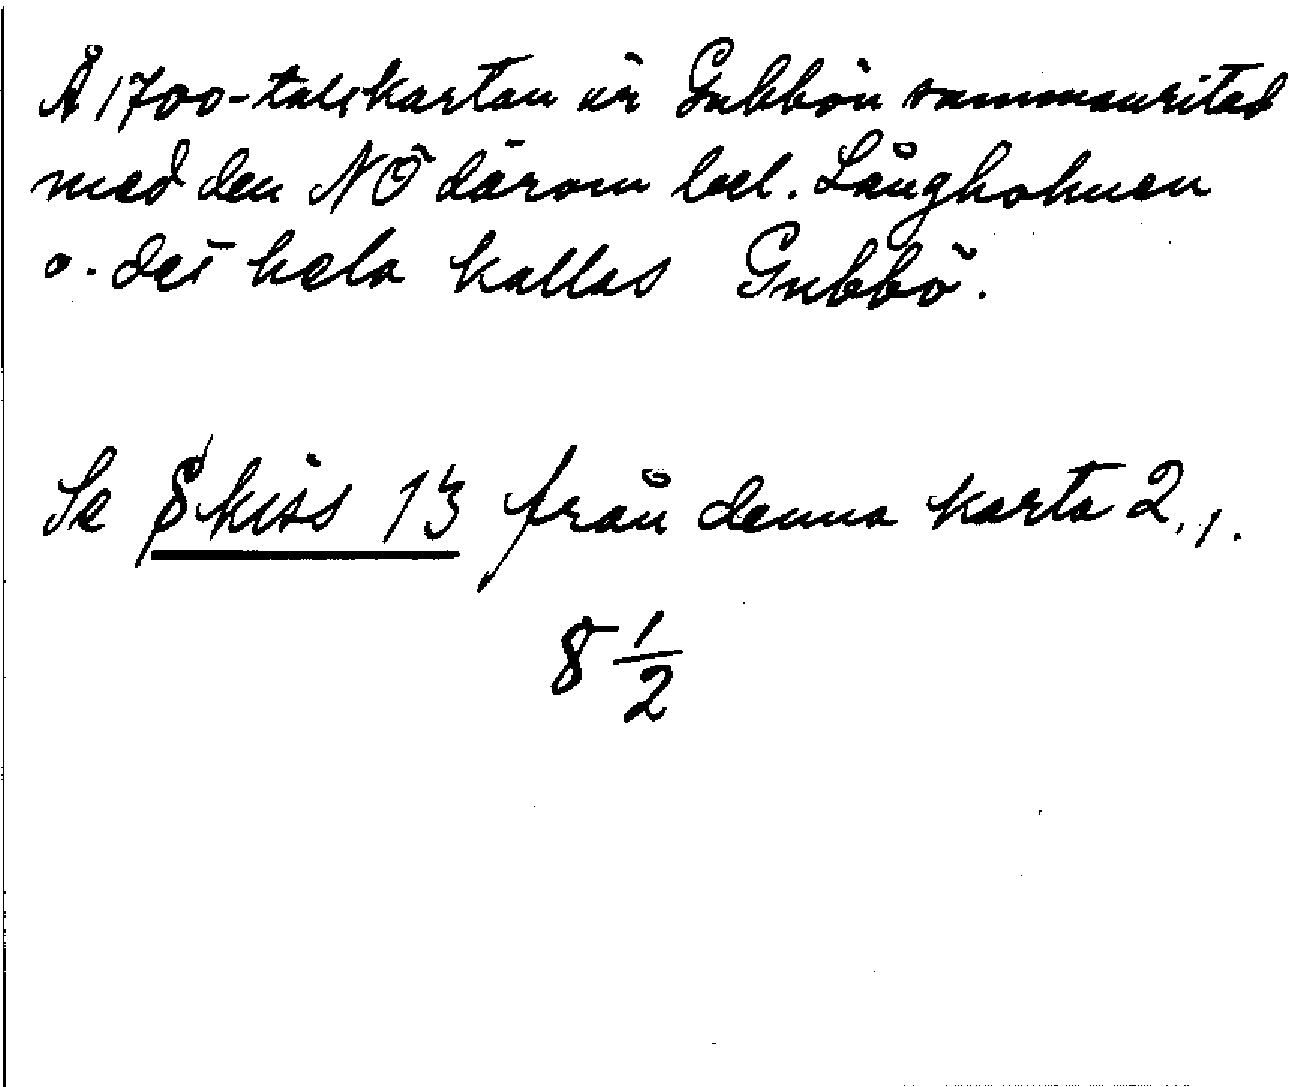 Å 1700-talskartan är Gubbön sammanritad
med den NÖ därom bel. Långholmen
o. det hela kallas Gubbö.
Se Skiss 13 från denna karta 2, 1.
8 1/2